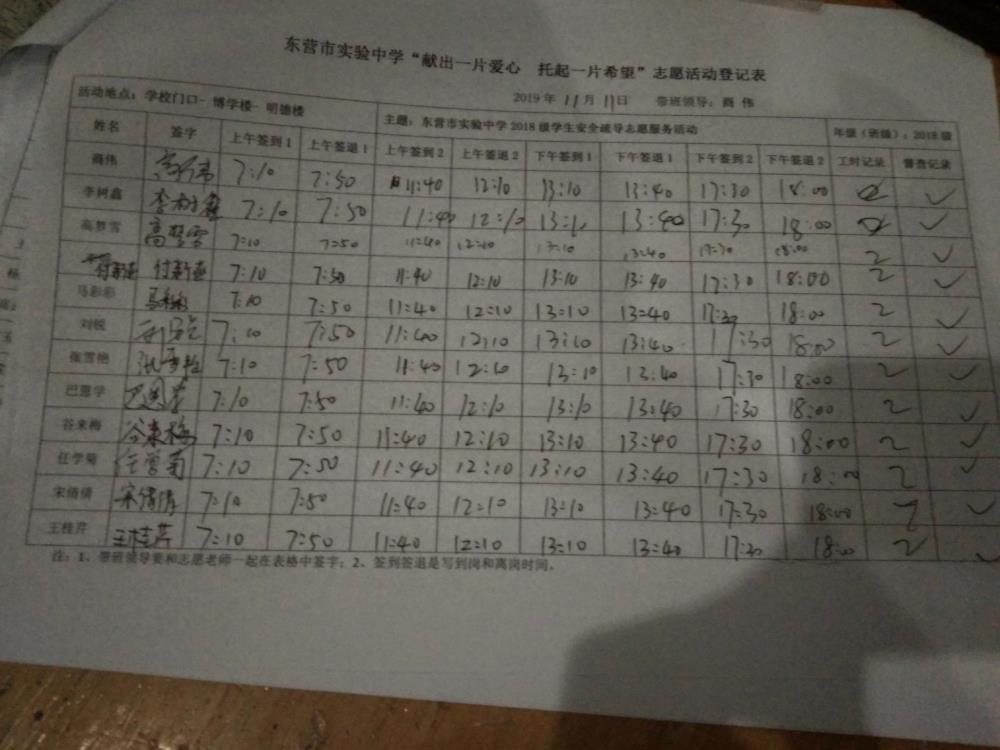 东营市实验中学“献出一片爱心 托起一片希望”志愿活动登记表
2019年11月11日 带班领导：商伟
活动地点：学校门口- 博学楼- 明德楼 主题：东营市实验中学2018级学生安全疏导志愿服务活动 年级（班级）：2018级
姓名 签字 上午签到1 上午签退1 上午签到2 上午签退2 下午签到1 下午签退1 下午签到2 下午签退2 工时记录 督查记录
商伟 商伟 7:10 7:50 11:40 12:10 13:10 13:40 17:30 18:00 2 ✓
李树鑫 李树鑫 7:10 7:50 11:40 12:10 13:10 13:40 17:30 18:00 2 ✓
高梦雪 高梦雪 7:10 7:50 11:40 12:10 13:10 13:40 17:30 18:00 2 ✓
付新燕 付新燕 7:10 7:50 11:40 12:10 13:10 13:40 17:30 18:00 2 ✓
马彩彩 7:10 7:50 11:40 12:10 13:10 13:40 17:30 18:00 2 ✓
刘锐 刘锐 7:10 7:50 11:40 12:10 13:10 13:40 17:30 18:00 2 ✓
张雪艳 张雪艳 7:10 7:50 11:40 12:10 13:10 13:40 17:30 18:00 2 ✓
巴恩学 巴恩学 7:10 7:50 11:40 12:10 13:10 13:40 17:30 18:00 2 ✓
谷来梅 谷来梅 7:10 7:50 11:40 12:10 13:10 13:40 17:30 18:00 2 ✓
任学菊 任学菊 7:10 7:50 11:40 12:10 13:10 13:40 17:30 18:00 2 ✓
宋倩倩 宋倩倩 7:10 7:50 11:40 12:10 13:10 13:40 17:30 18:00 2 ✓
王桂芹 王桂芹 7:10 7:50 11:40 12:10 13:10 13:40 17:30 18:00 2 ✓
注：1、带班领导要和志愿老师一起在表格中签字；2、签到签退是写到岗和离岗时间。